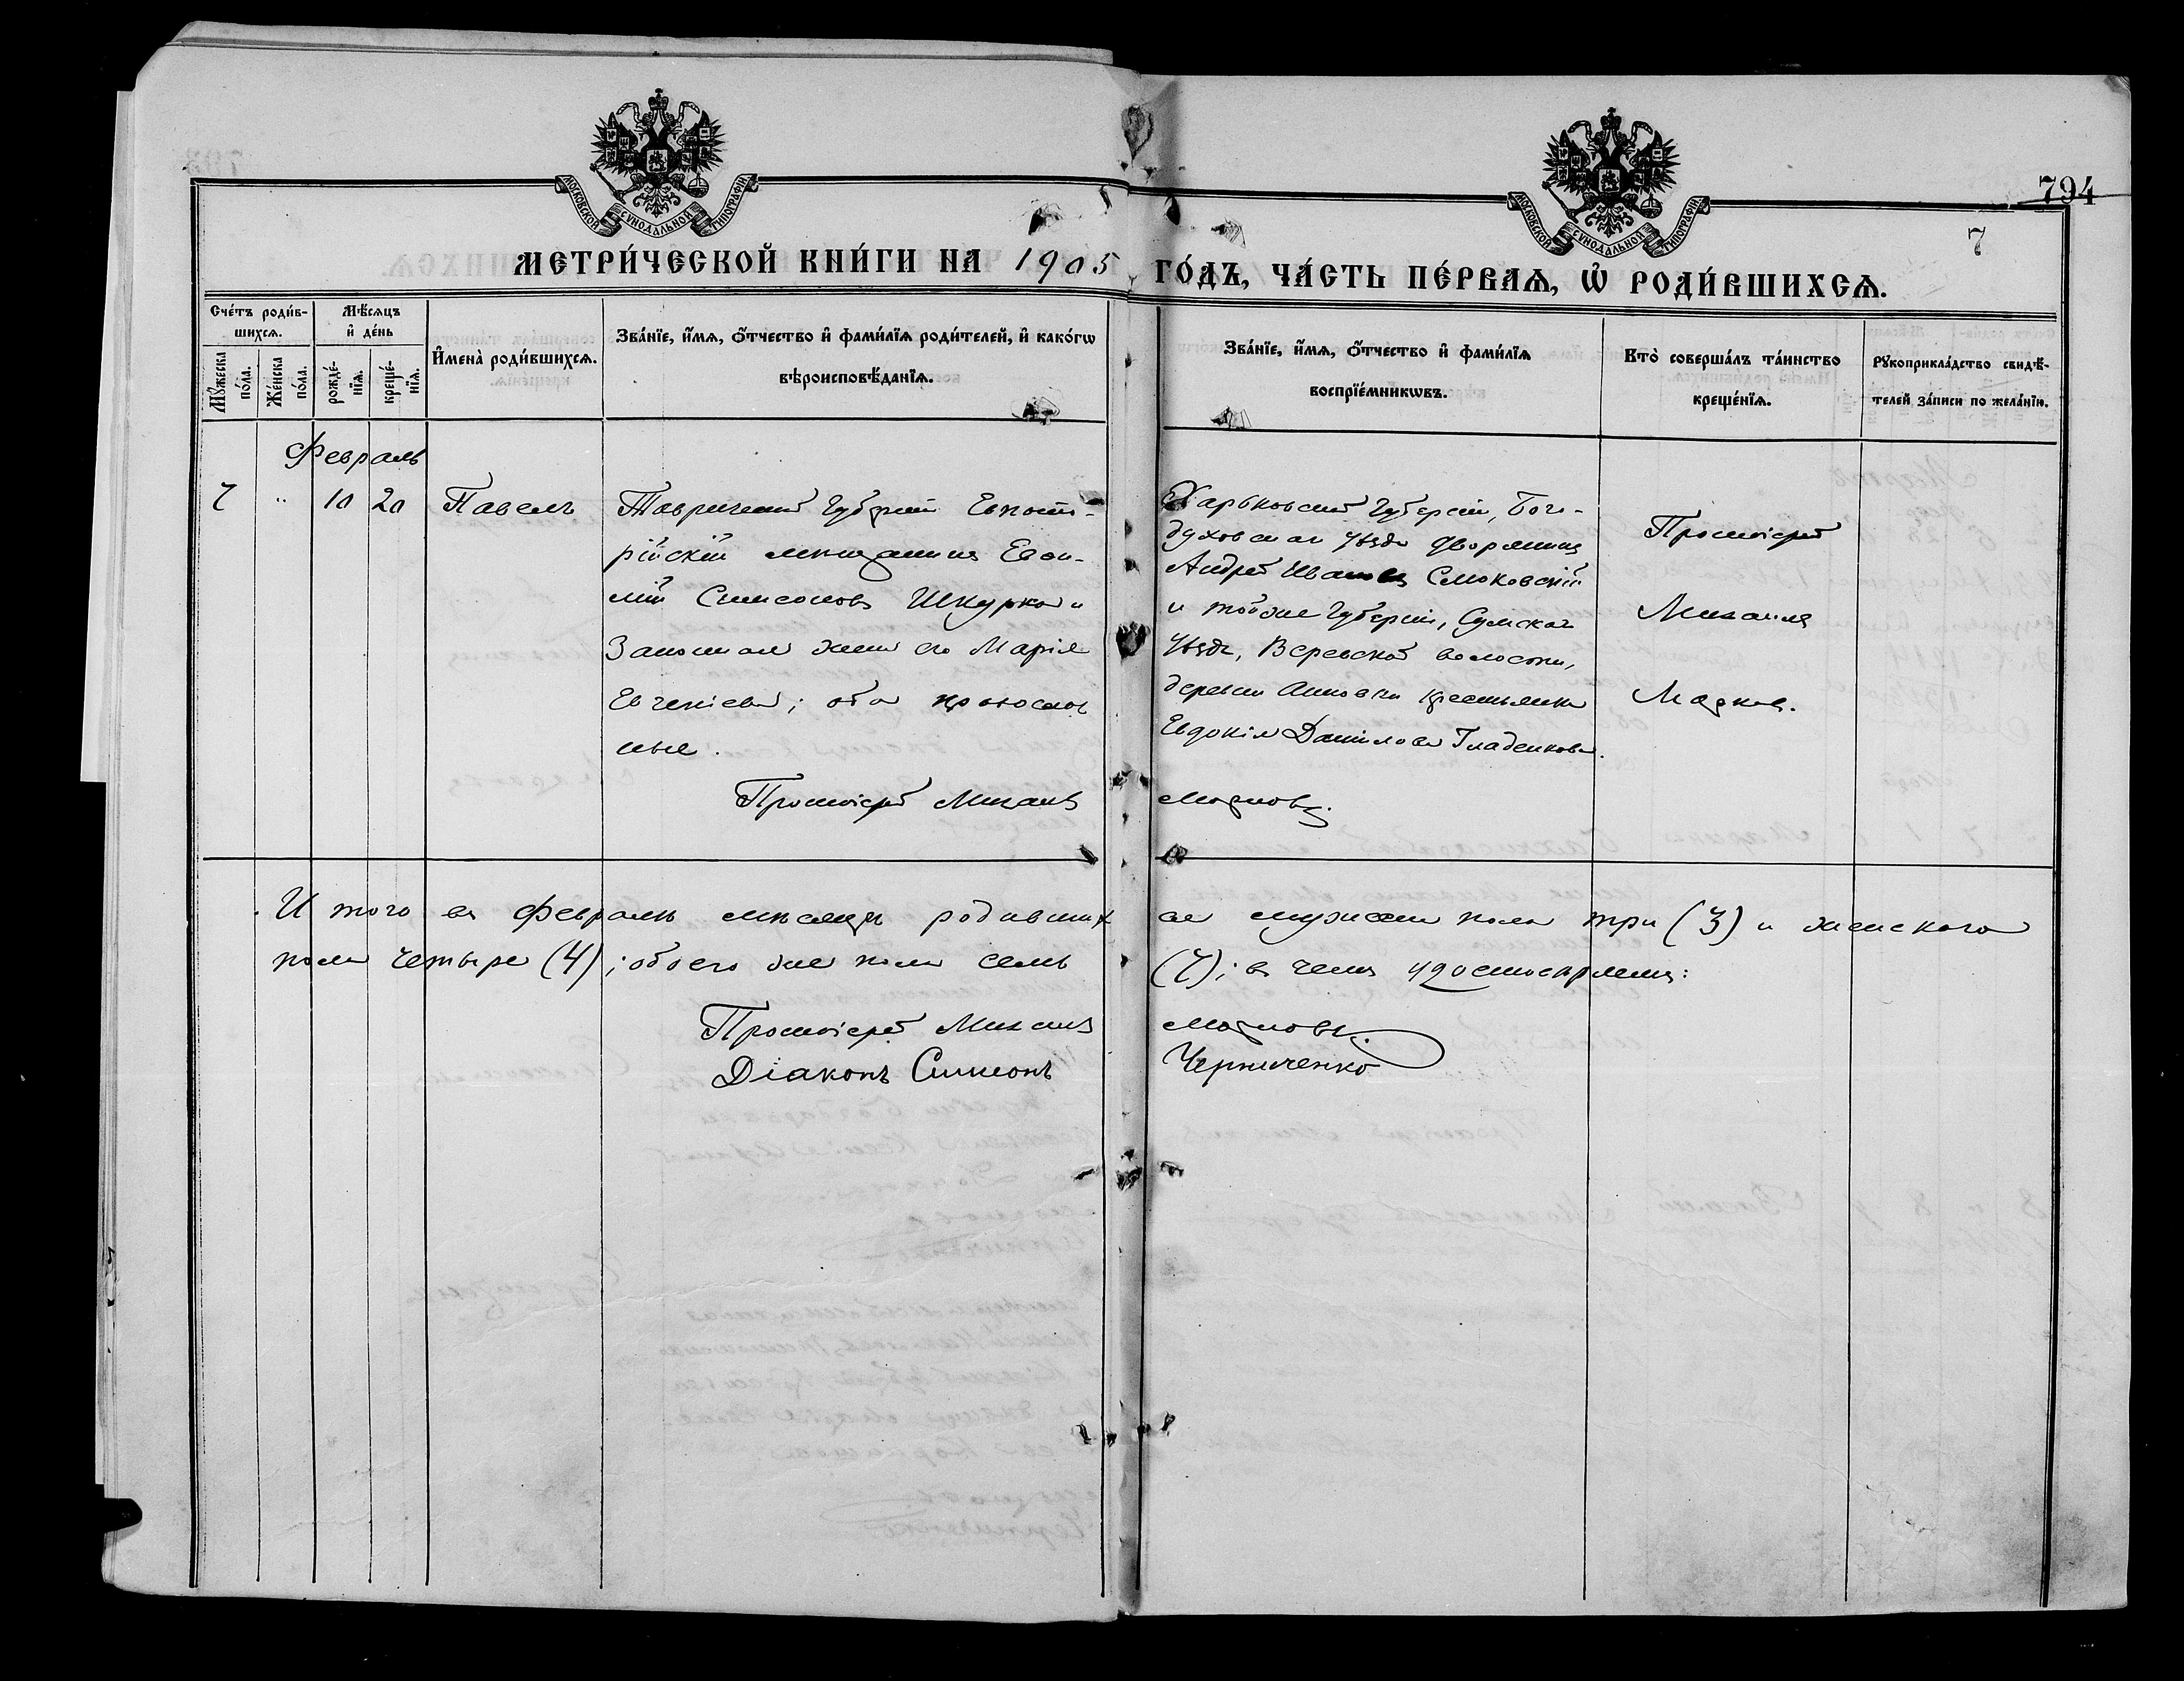 МОСКОВСКОЙ СУНОДАЛЬНОЙ ТИПОГРАФІИ
МОСКОВСКОЙ СУНОДАЛЬНОЙ ТИПОГРАФІИ
794
7
МЕТРИ́ЧЕСКОЙ КНИ́ГИ НА 1905 ГО́ДЪ, ЧА́СТЬ ПЕ́РВАѦ, Ѡ РОДИ́ВШИХСѦ.
Сче́тъ роди́в-
шихсѧ.
Мꙋ́жеска по́ла.
Же́нска по́ла.
Мѣ́сѧцъ
и҆ де́нь
рожде́-
нїѧ.
креще́-
нїѧ.
И҆мена̀ роди́вшихсѧ.
Зва́нїе, и҆́мѧ, ѻ҆́тчество и҆ фами́лїѧ роди́телей, и҆ како́гѡ
вѣроисповѣ́данїѧ.
Зва́нїе, и҆́мѧ, ѻ҆́тчество и҆ фами́лїѧ
воспрїе́мникѡвъ.
Кто̀ соверша́лъ та́инство
креще́нїѧ.
Рꙋкоприкла́дство свидѣ́-
телей за́писи по жела́нїю.
Февраль
7 " 10 20 Павелъ
Таврической Губерніи Евпато-
рійскій мещанинъ Евѳи-
мій Симеоновъ Шкурко и
Законная жена его Марія
Евгеніева; оба православ
ные.
Харьковской Губерніи, Бого-
духовскаго уѣзда дворянинъ
Андрей Ивановъ Смоковскій
и тойже Губерніи, Сумскаго
Уѣзда, волости,
деревни крестьянка
Евдокія Данилова Гладенкова.
Протоіерей
Михаилъ
Марковъ.
Протоіерей Михаилъ Марковъ.
Итого въ Февралѣ мѣсяцѣ родившихся мужеска пола три (3) и женскаго
пола четыре (4); обоего же пола семь (7); въ чемъ удостовѣряемъ:
Протоіерей Михаилъ Марковъ.
Діаконъ Симеонъ Черниченко